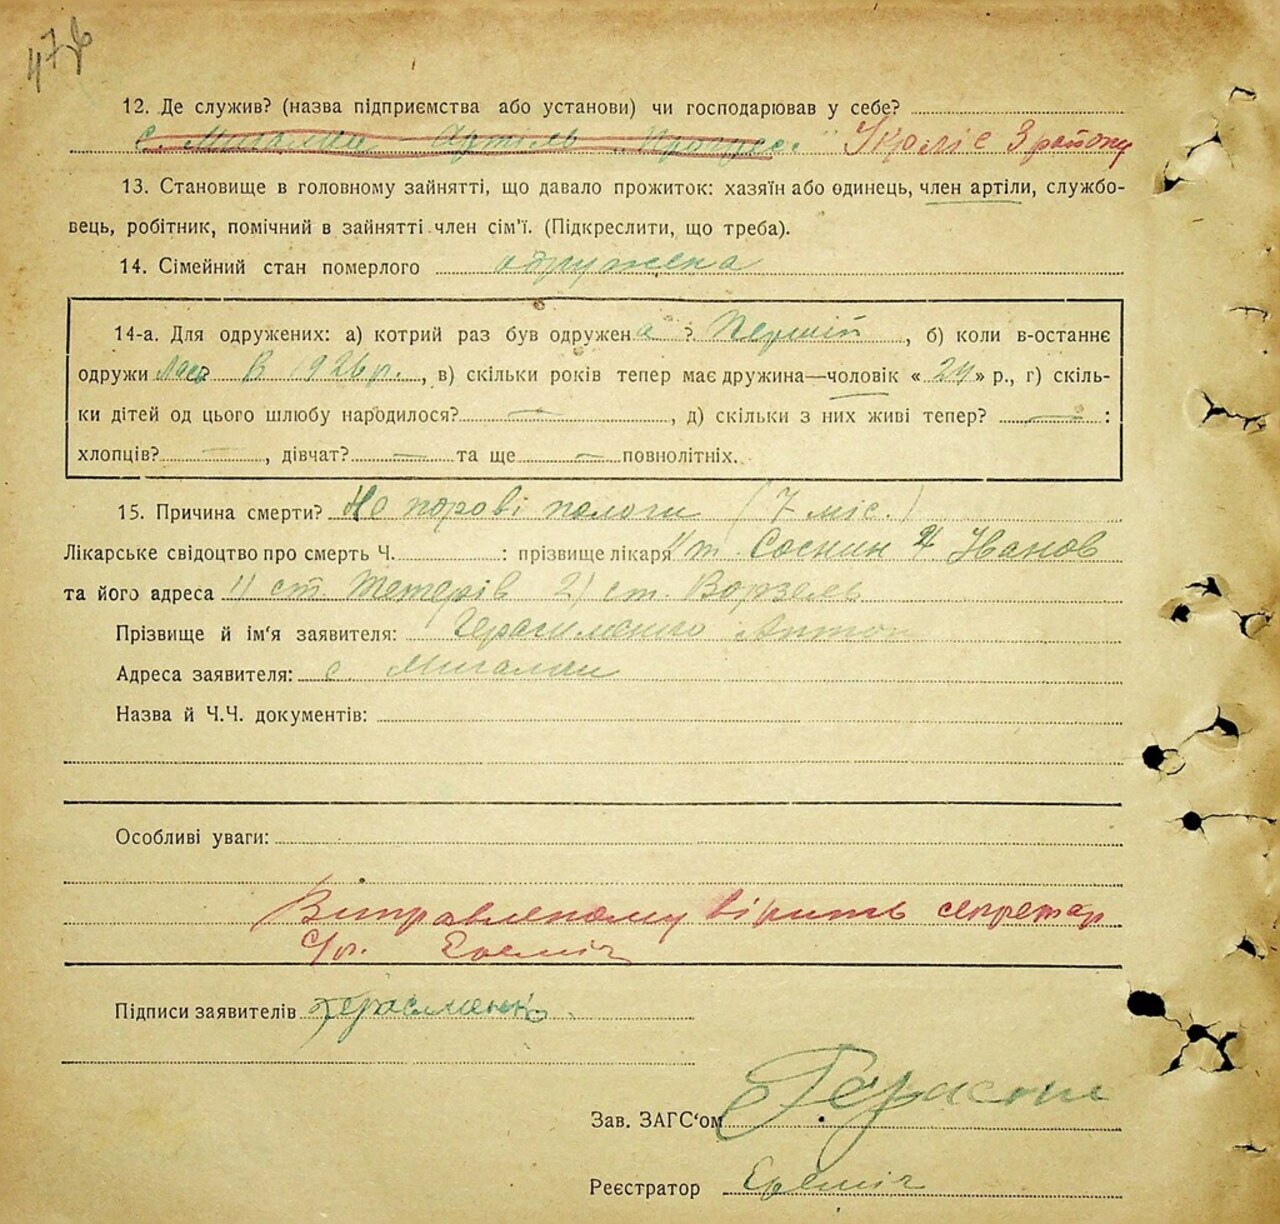 47
12. Де служив? (назва підприємства або установи) чи господарював у себе?
с. Мигалки Артіль "Прогрес" Укрліс 3 району
13. Становище в головному зайнятті, що давало прожиток: хазяїн або одинець, член артіли, службо-
вець, робітник, помічний в зайнятті член сім'ї. (Підкреслити, що треба).
14. Сімейний стан померлого одружена
14-а. Для одружених: а) котрий раз був одружен а ? Перший, б) коли в-останнє
одружи лась В 1926 р., в) скільки років тепер має дружина—чоловік « 24 » р., г) скіль-
ки дітей од цього шлюбу народилося? —, д) скільки з них живі тепер? — :
хлопців? —, дівчат? — та ще — повнолітніх.
15. Причина смерти? пологи (7 міс.)
Лікарське свідоцтво про смерть Ч. : прізвище лікаря Соснин Иванов
та його адреса 1) ст. Тетерів 2) ст. Ворзель
Прізвище й ім'я заявителя: Герасименко Антон
Адреса заявителя: с. Мигалки
Назва й Ч.Ч. документів:
Особливі уваги:
Виправленому вірить секретар
с/р. Еремич
Підписи заявителів Герасименко
Зав. ЗАГС'ом
Реєстратор Еремич